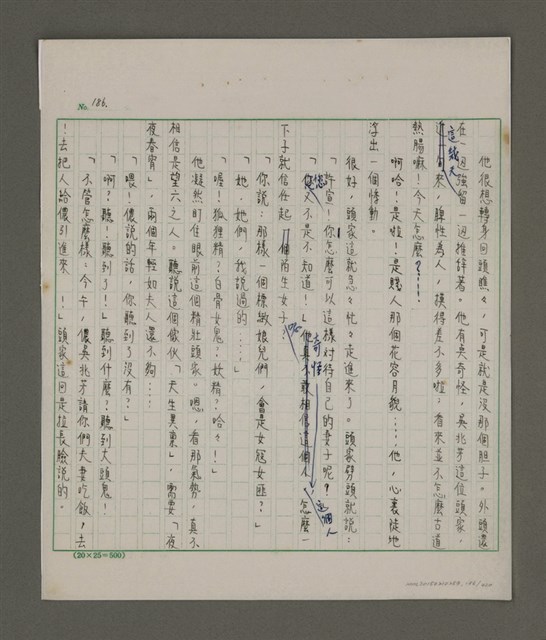 No. 186.
他很想轉身回頭瞧々，可是就是沒那個胆子。外頭還
在一迎強留一迎推辞著。他有矣奇怪，吳兆芳這位頭家，
這幾天
近旬來，脾性為人，摸得差不多啦；看來並不怎麼古道
熱腸嘛！今天怎麼？！！！
啊哈！是啦！是賤人那個花容月貌……他，心裏陡地
浮出一個悸動。
很好，頭家這就急々忙々走進來了。頭家劈頭就說：
「許宣！你怎麼可以這樣對待自己的妻子呢？」
「您又不是不知道！」他真不敢相信這個人，怎麼一
奇怪
這個人
下子就信任起一個陌生女子。
「你說：那樣一個標緻娘兒們，會是女冠女匪？」
「她，她們，我說過的……」
「喔！狐狸精？白骨女鬼？妖精？哈々！」
他凝然盯住眼前這個精壯頭家。嗯，看那氣勢，真不
相信是望六之人。聽說這個傢伙「天生異稟」，需要「夜
夜春宵」，兩個年輕如夫人還不夠……
「喂！儂說的話，你聽到了沒有？」
「啊？聽！聽到了！」聽到什麼？聽到大頭鬼！
「不管怎麼樣：今午，儂吳兆芳請你們夫妻吃飯，去
！去把人給儂引進來！」頭家這回是拉長臉說的。
(20×25=500)